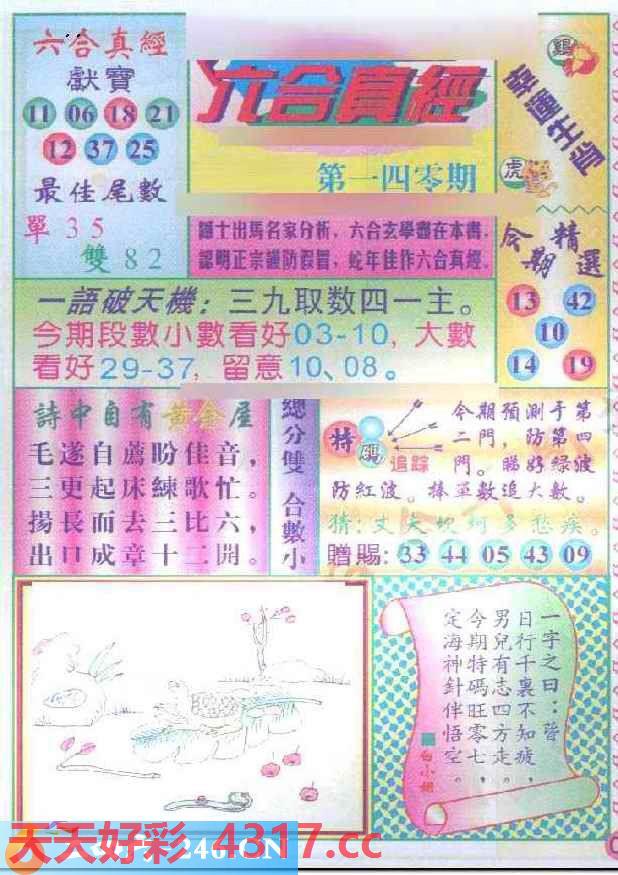 六合真經
獻寶
11 06 18 21
12 37 25
最佳尾數
單 3 5
雙 8 2
六合真經
第一四零期
雞
虎
今期精選
13 42
10
14 19
師士出馬名家分析，六合玄學盡在本書，
認明正宗謹防假冒，蛇年佳作六合真經。
一語破天機：三九取数四一主。
今期段數小數看好03-10, 大數
看好29-37, 留意10、08。
詩中自有黃金屋
毛遂自薦盼佳音，
三更起床練歌忙。
揚長而去三比六，
出口成章十二開。
總分雙 合數小
特碼
追踪
今期預測于第
二門，防第四
門。睇好綠波
防紅波。捧單數追大數。
猜:丈夫坎坷多愁疾。
贈賜: 33 44 05 43 09
一字之曰：
日行千裏不知疲，
男兒有志四方走，
今期特碼旺零七，
定海神針伴悟空。
白小姐
天天好彩 4317.cc
246.CN